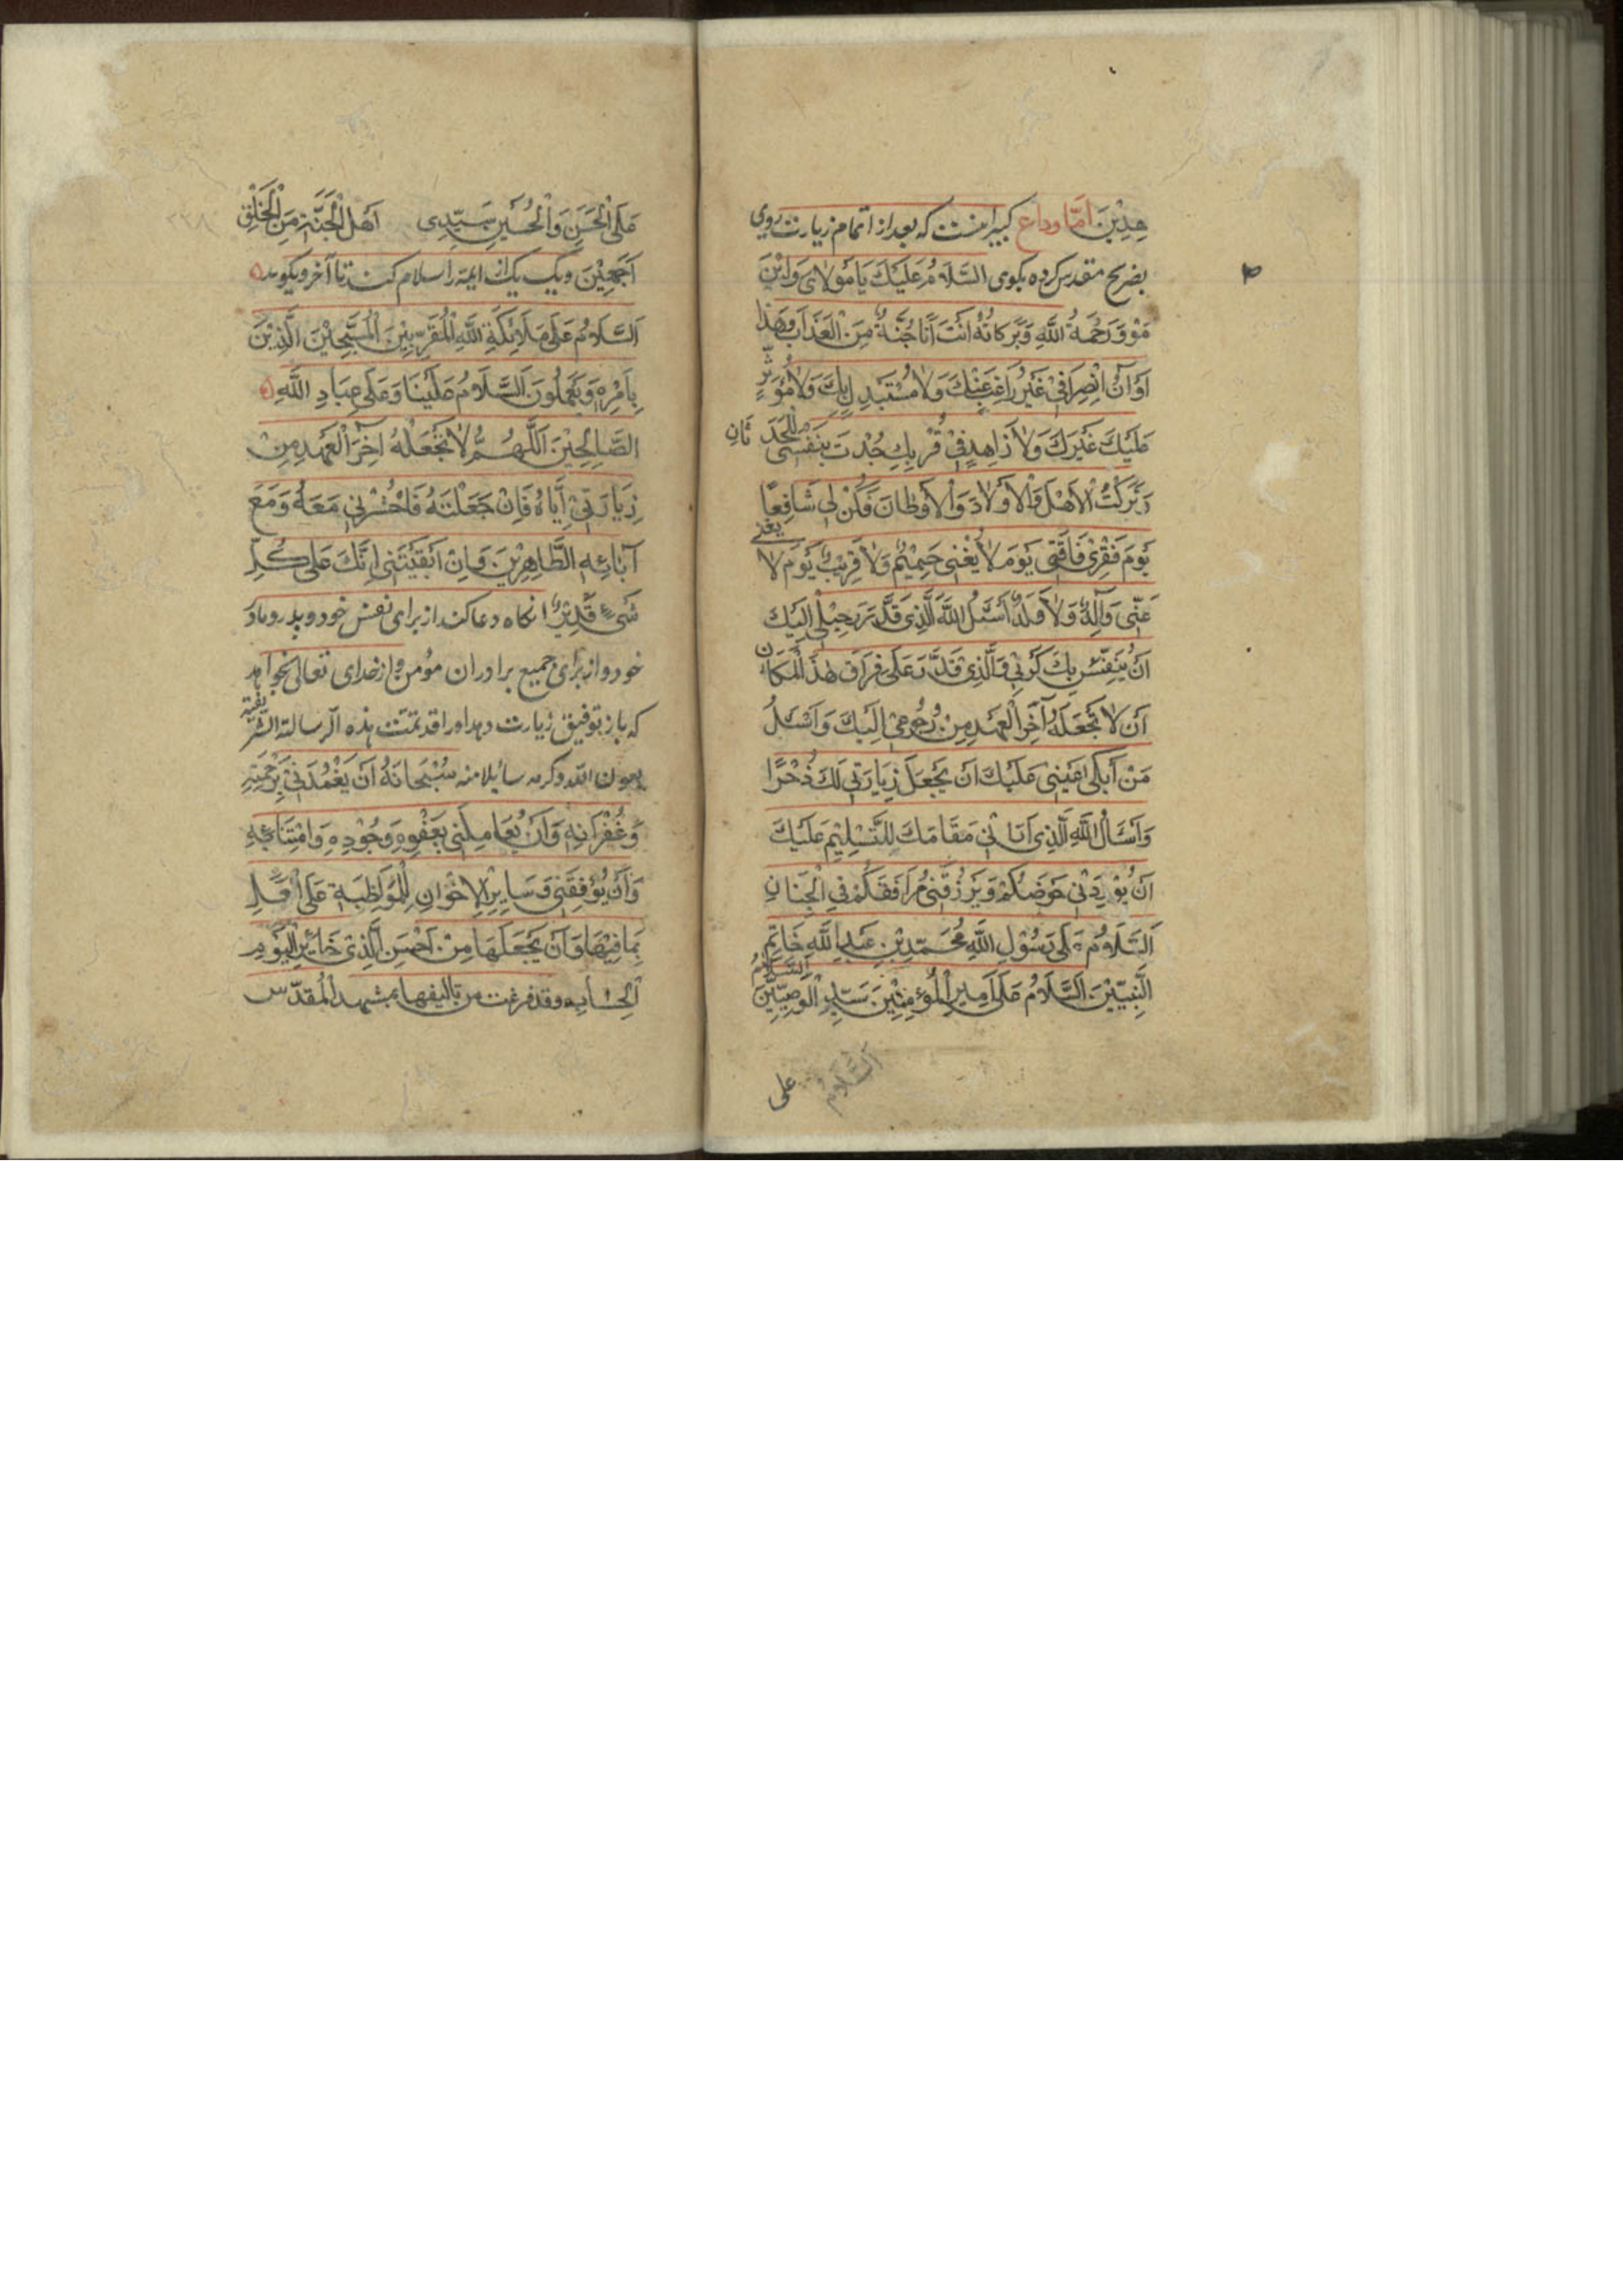 هِدِيْنَ اَمّا وداع كبير اينست كه بعد از اتمام زيارت روي
بضريح مقدس كرده بكوى السَّلَامُ عَلَيْكَ يَا مَوْلَاىَ وَابْنَ
مَوْ وَرَحْمَةُ اللَّهِ وَبَرَكَاتُهُ اَنْتَ اَنَا جُنَّةٌ مِنَ الْعَذَابِ وَهٰذَا
اَوَانُ اِنْصِرَافِيْ غَيْرُ رَاغِبٍ عَنْكَ وَلَا مُسْتَبْدِلٍ بِكَ وَلَا مُؤَثِّرٍ
عَلَيْكَ غَيْرَكَ وَلَا زَاهِدٍ فِيْ قُرْبِكَ جُدْتَ بِنَفْسِى لِلْحَدَثَانِ
وَتَرَكْتُ الْاَهْلَ وَالْاَوْلَادَ وَالْاَوْطَانَ فَكُنْ لِى شَافِعًا
يَوْمَ فَقْرِىْ فَاقَتِى يَوْمَ لَا يُغْنِى حَمِيْمٌ وَلَا قَرِيْبٌ يَوْمَ لَا يغنى
عَنِّى وَالِدٌ وَلَا وَلَدٌ اَسْئَلُ اللَّهَ الَّذِى قَدَّرَ رَحِيْلِى اِلَيْكَ
اَنْ يُنَفِّسَ بِكَ كَرْبِى وَالَّذِى قَدَّرَ عَلَى فِرَاقِ هٰذَا الْمَكَانِ
اَنْ لَا تَجْعَلَهُ آخِرَ الْعَهْدِ مِنْ رُجُوعِى اِلَيْكَ وَاَسْئَلُ
مَنْ اَبْكَى عَيْنِى عَلَيْكَ اَنْ يَجْعَلَ زِيَارَتِى لَكَ ذُخْرًا
وَاَسْئَالُ اللَّهَ الَّذِى اَتَانِى مَقَامَكَ لِلتَّسْلِيْمِ عَلَيْكَ
اَنْ يُوْرِدَنِى حَوْضَكُمْ وَيَرْزُقَنِى مُرَافَقَكُمْ فِى الْجَنَانِ
اَلسَّلَامُ عَلَى رَسُوْلِ اللَّهِ مُحَمَّدِ بْنِ عَبْدِ اللَّهِ خَاتِمِ
النَّبِيِّيْنَ السَّلَامُ عَلَى اَمِيْرِ الْمُؤْمِنِيْنَ سَيِّدِ الْوَصِيِّيْنَ السَّلَامُ
السَّلَامُ
على
عَلَى الْحَسَنِ وَالْحُسَيْنِ سَيِّدِى اَهْلِ الْجَنَّةِ مِنَ الْخَلْقِ
اَجْمَعِيْنَ ويك يك از ايمه را سلام كند تا آخر وبكويد
اَلسَّلَامُ عَلَى مَلَائِكَةِ اللَّهِ الْمُقَرَّبِيْنَ الْمُسَبِّحِيْنَ الَّذِيْنَ
بِاَمْرِهِ وَيَعْمَلُونَ اَلسَّلَامُ عَلَيْنَا وَعَلَى عِبَادِ اللَّهِ
الصَّالِحِيْنَ اَللَّهُمَّ لَا تَجْعَلْهُ آخِرَ الْعَهْدِ مِنْ
زِيَارَتِىْ اِيَّاهُ فَاِنْ جَعَلْتَهُ فَاحْشُرْنِى مَعَهُ وَمَعَ
آبَائِهِ الطَّاهِرِيْنَ وَاِنْ اَبْقَيْتَنِى اِنَّكَ عَلَى كُلِّ
شَىْءٍ قَدِيْرٌ انكاه دعا كند از براى نفس خود وپدر ومادر
خود واز براى جميع برادران مؤمن واز خداى تعالى بخواهد
كه باز توفيق زيارت دهد او را قد تمّت هذه الرسالة الشريفة
بعون الله وكرمه سائلا منه سُبْحَانَهُ اَنْ يَغْمُدَنِىْ بِرَحْمَتِهِ
وَغُفْرَانِهِ وَاَنْ يُعَامِلَنِى بِعَفْوِهِ وَجُوْدِهِ وَامْتِنَائِهِ
وَاَنْ يُوَفِّقَنِى وَسَايِرَ الْاِخْوَانِ لِلْمُوَاظِبَةِ عَلَى عَمَلِ
بِمَا فِيْهَا وَاَنْ يَجْعَلَهَا مِنْ اَحْسَنِ الَّذِى ذَخَائِرِ الْيَوْمِ
الْحِسَابِ وقد فرغت من تاليفها بمشهد الْمُقَدَّس